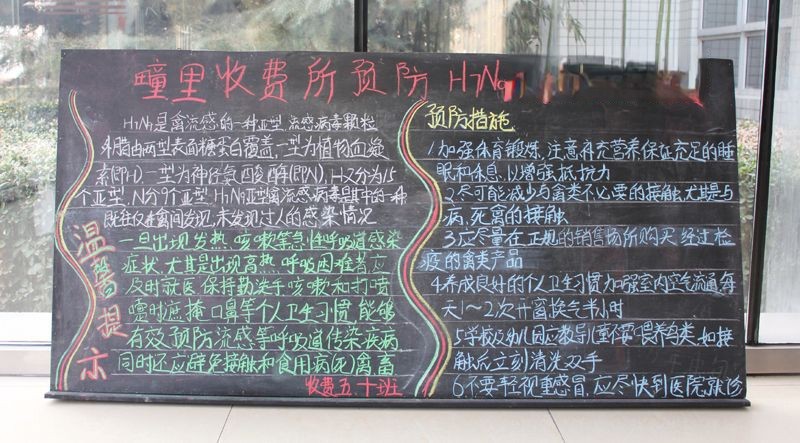 疃里收费所预防H7N9
H7N9是禽流感的一种亚型流感病毒颗粒
外膜由两型表面糖蛋白覆盖,一型为植物血凝
素(即H)一型为神经氨酸酶(即N),H又分为15
个亚型,N分9个亚型H7N9亚型禽流感病毒是其中的一种
既往仅在禽间发现,未发现过人的感染情况
温馨提示
一旦出现发热 咳嗽等急性呼吸道感染
症状,尤其是出现高热 呼吸困难者应
及时就医 保持勤洗手咳嗽和打喷
嚏时遮掩口鼻等个人卫生习惯 能够
有效预防流感等呼吸道传染疾病
同时还应避免接触和食用病(死)禽畜
收费五、十班
预防措施
1加强体育锻炼,注意补充营养保证充足的睡
眠和休息,以增强抵抗力
2.尽可能减少与禽类不必要的接触,尤其是与
病,死禽的接触
3,应尽量在正规的销售场所购买经过检
疫的禽类产品
4.养成良好的个人卫生习惯加强室内空气流通每
天1~2次开窗换气半小时
5学校及幼儿园应教导儿童不要喂养禽类,如接
触后立刻清洗双手
6.不要轻视重感冒,应尽快到医院就诊